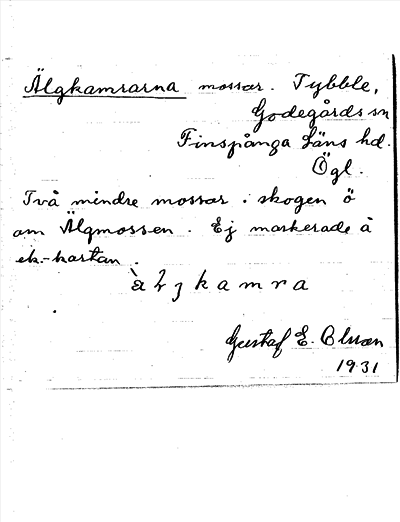 Älgkamrarna mossar. Tybble,
Godegårds sn
Finspånga Läns hd.
Ögl.
Två mindre mossar i skogen ö
om Älgmossen. Ej markerade å
ek.-kartan.
kamra
Gustaf E. Olsson
1931